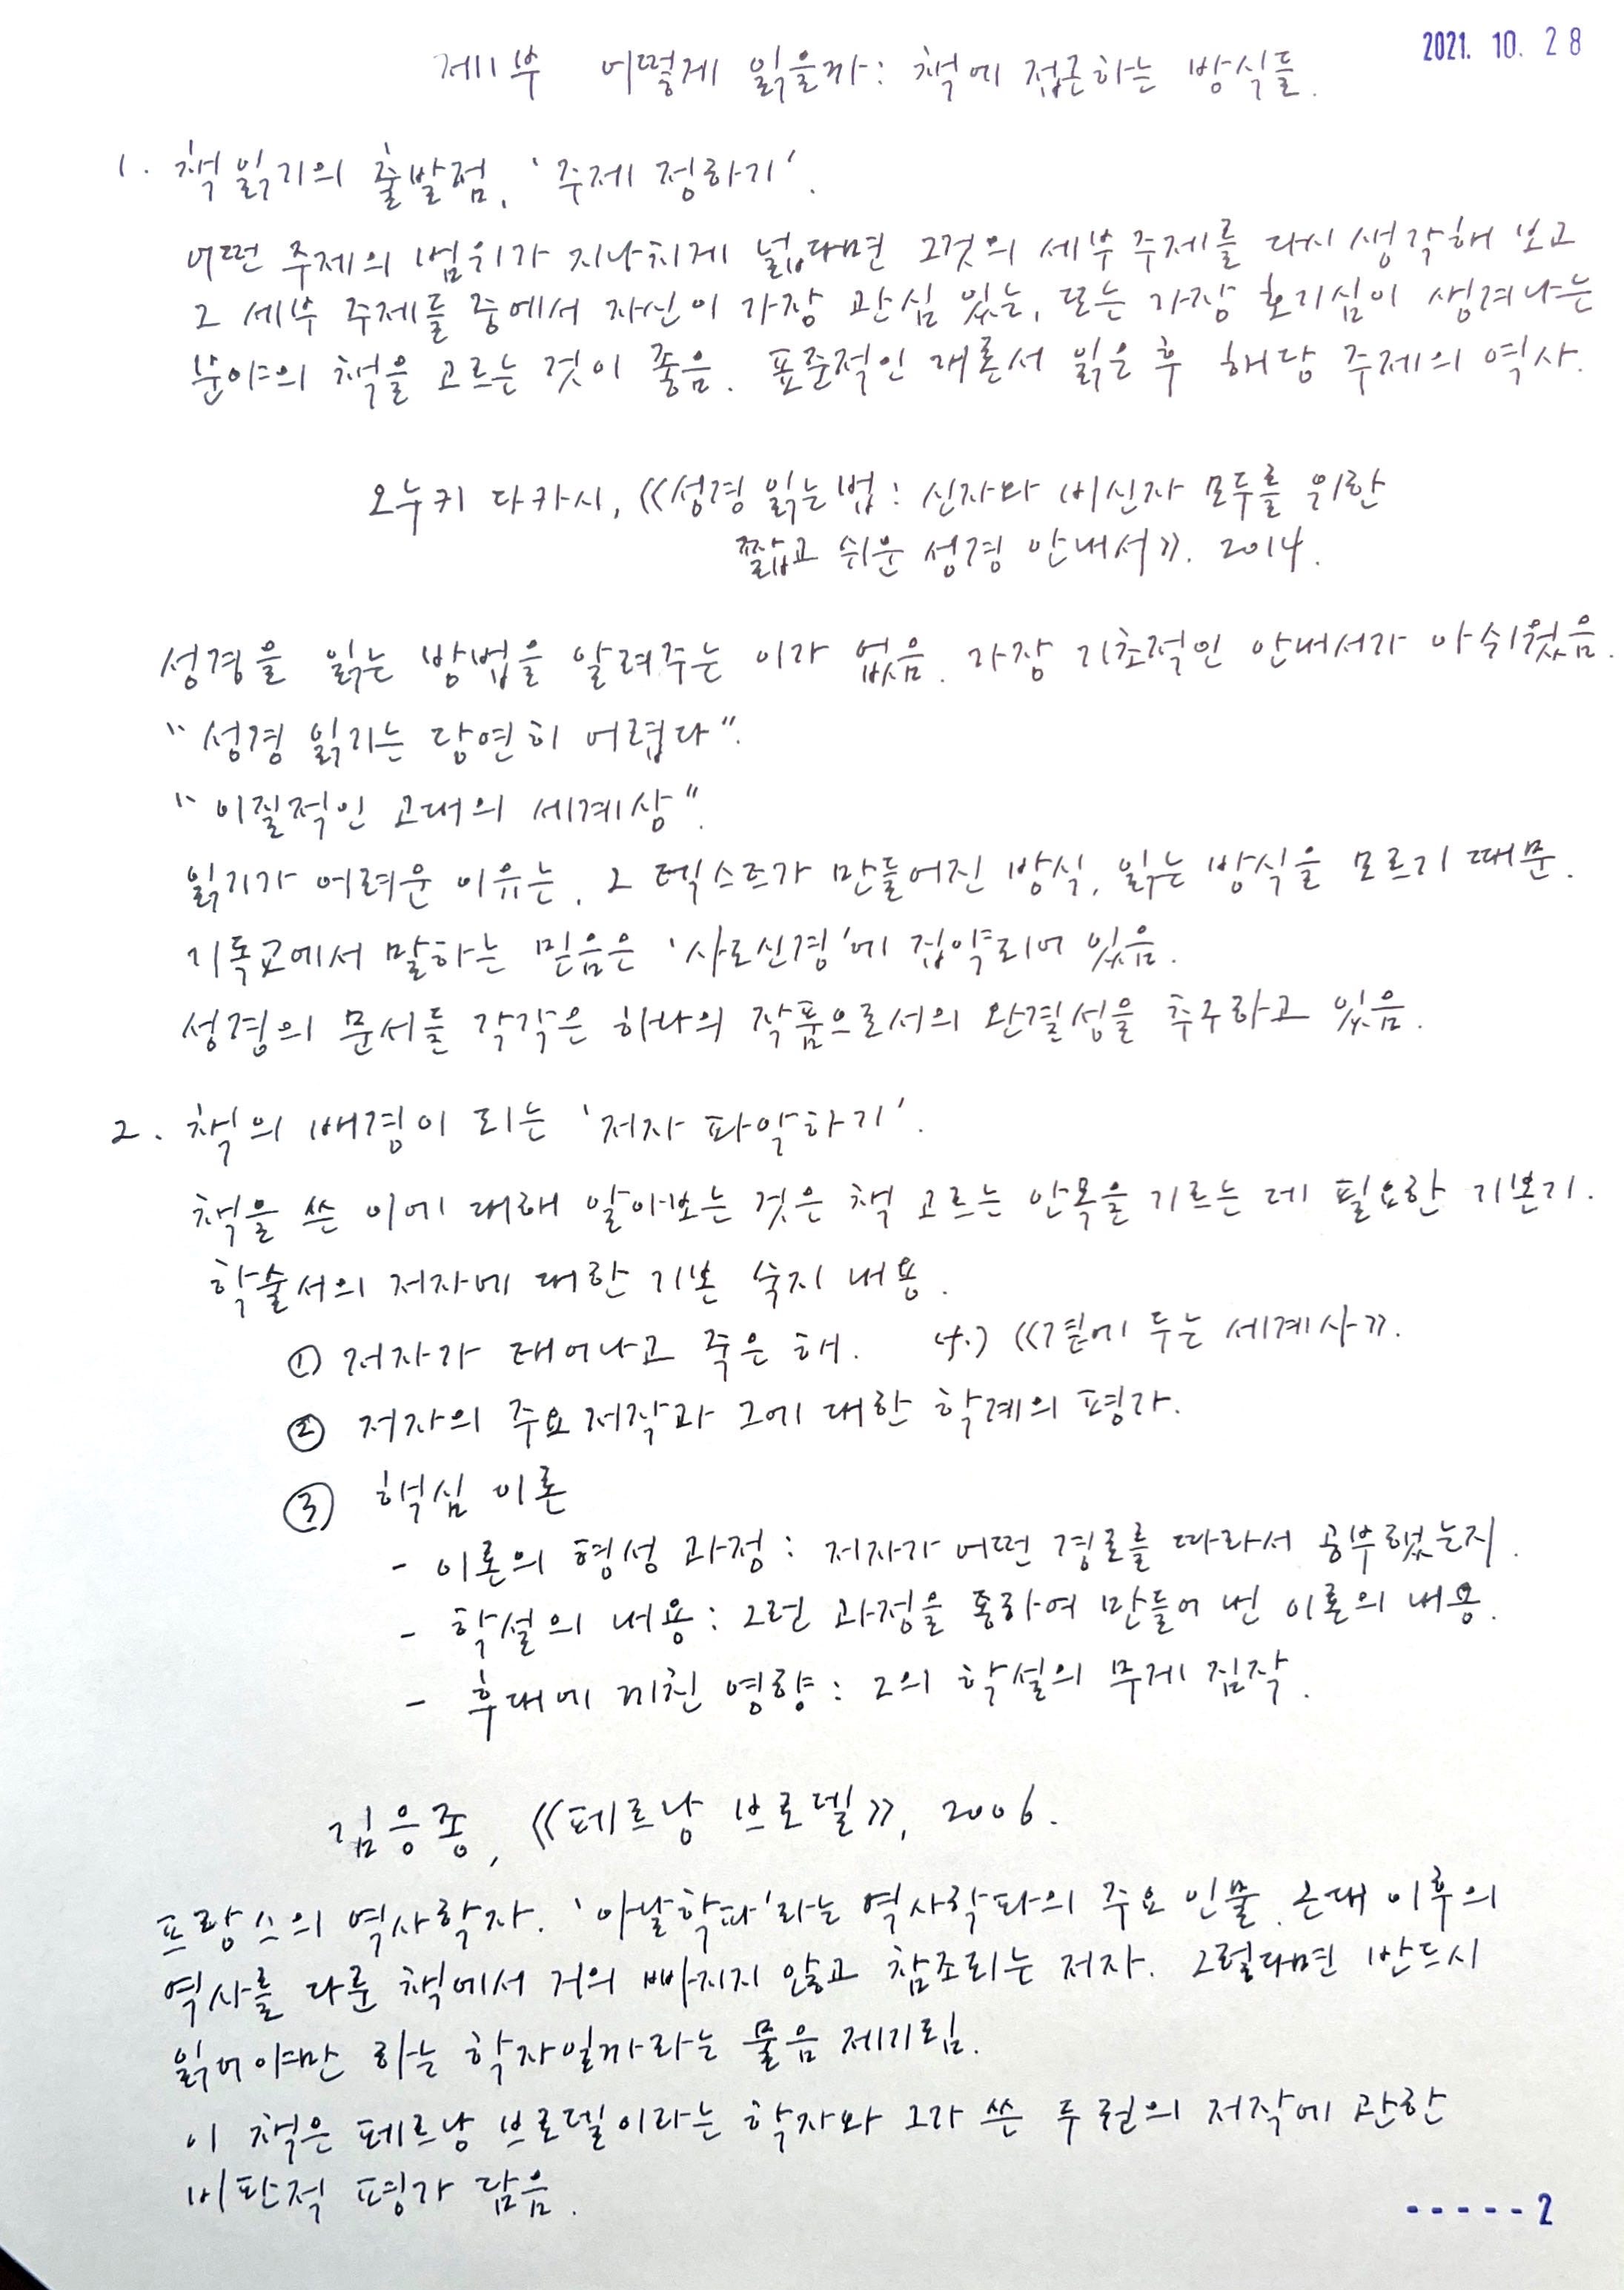 2021. 10. 28
제1부 어떻게 읽을까: 책에 접근하는 방식들.
1. 책 읽기의 출발점, '주제 정하기'.
어떤 주제의 범위가 지나치게 넓다면 그것의 세부 주제를 다시 생각해 보고
그 세부 주제들 중에서 자신이 가장 관심 있는, 또는 가장 호기심이 생겨나는
분야의 책을 고르는 것이 좋음. 표준적인 개론서 읽은 후 해당 주제의 역사.
오누키 다카시, 《성경 읽는 법: 신자와 비신자 모두를 위한
짧고 쉬운 성경 안내서》. 2014.
성경을 읽는 방법을 알려주는 이가 없음. 가장 기초적인 안내서가 아쉬웠음.
"성경 읽기는 당연히 어렵다".
"이질적인 고대의 세계상".
읽기가 어려운 이유는, 그 텍스트가 만들어진 방식, 읽는 방식을 모르기 때문.
기독교에서 말하는 믿음은 '사도신경'에 집약되어 있음.
성경의 문서들 각각은 하나의 작품으로서의 완결성을 추구하고 있음.
2. 책의 배경이 되는 '저자 파악하기'.
책을 쓴 이에 대해 알아보는 것은 책 고르는 안목을 기르는 데 필요한 기본기.
학술서의 저자에 대한 기본 숙지 내용.
① 저자가 태어나고 죽은 해. 《곁에 두는 세계사》.
② 저자의 주요 저작과 그에 대한 학계의 평가.
③ 핵심 이론
- 이론의 형성 과정: 저자가 어떤 경로를 따라서 공부했는지.
- 학설의 내용: 그런 과정을 통하여 만들어 낸 이론의 내용.
- 후대에 끼친 영향: 그의 학설의 무게 짐작.
김응종, 《페르낭 브로델》, 2006.
프랑스의 역사학자. '아날학파'라는 역사학파의 주요 인물. 근대 이후의
역사를 다룬 책에서 거의 빠지지 않고 참조되는 저자. 그렇다면 반드시
읽어야만 하는 학자일까라는 물음 제기됨.
이 책은 페르낭 브로델이라는 학자와 그가 쓴 두 권의 저작에 관한
비판적 평가 담음.
-----2